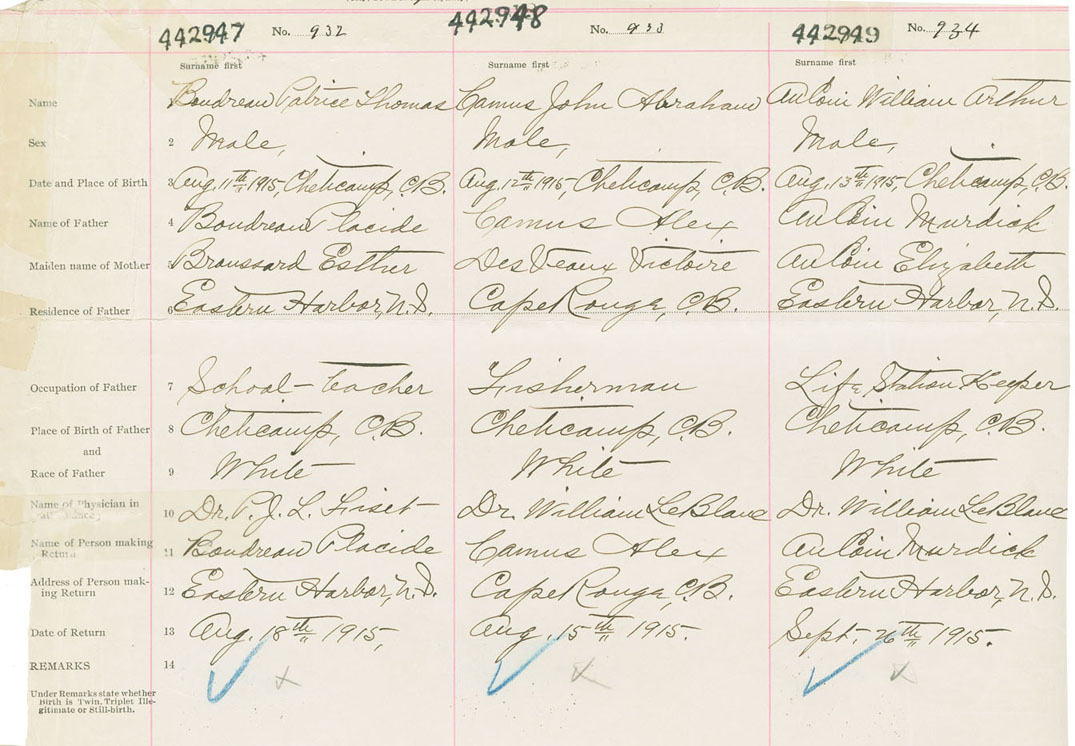 442947 No. 932 442948 No. 933 442949 No. 934
Surname first Surname first Surname first
Name Boudreau Patrice Thomas Camus John Abraham AuCoin William Arthur
Sex 2 Male, Male, Male,
Date and Place of Birth 3 Aug. 11th 1915, Cheticamp, C.B. Aug. 12th 1915, Cheticamp, C.B. Aug. 13th 1915, Cheticamp, C.B.
Name of Father 4 Boudreau Placide Camus Alex AuCoin Murdick
Maiden name of Mother Broussard Esther DesVeaux Victoire AuCoin Elizabeth
Residence of Father 6 Eastern Harbor, N.S. Cape Rouge, C.B. Eastern Harbor, N.S.
Occupation of Father 7 School-teacher Fisherman Life Station Keeper
Place of Birth of Father 8 Cheticamp, C.B. Cheticamp, C.B. Cheticamp, C.B.
and
Race of Father 9 White White White
Name of Physician in
10 Dr. P.J.L. Fiset Dr. William LeBlanc Dr. William LeBlanc
Name of Person making
Return 11 Boudreau Placide Camus Alex AuCoin Murdick
Address of Person mak-
ing Return 12 Eastern Harbor, N.S. Cape Rouge, C.B. Eastern Harbor, N.S.
Date of Return 13 Aug. 18th 1915, Aug. 15th 1915. Sept. 26th 1915.
REMARKS 14
Under Remarks state whether
Birth is Twin, Triplet Ille-
gitimate or Still-birth.